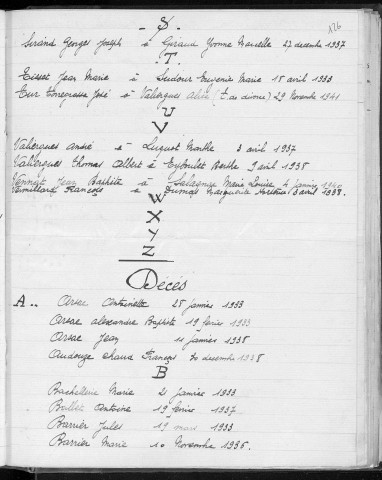 S.
126
Sirand Georges Joseph à Giraud Yvonne Marcelle 27 decembre 1937
T.
Tisset Jean Marie à Sudour Eugenie Marie 18 avril 1933
Tur Torregrosse José à Valergues Alice (t. as divorce) 29 Novembre 1941
U
V
Valergues André à Luquet Marthe 3 avril 1937
Valergues Thomas Albert à Eyboulet Berthe 9 avril 1938
Vennat Jean Baptiste à Marie Louise 4 janvier 1940
Vemillard François à Marguerite 3 avril 1938.
W
X
Y
Z
Décés
A..
Arsac Antoinette 25 janvier 1933
Arsac alexandre Baptiste 19 fevrier 1933
Arsac Jean 11 janvier 1938
Audouze chaud François 30 decembre 1938
B
Bachellerie Marie 2 janvier 1933
Ballet Antoine 19 fevrier 1937
Barrier Jules 19 mars 1933
Barrier Marie 10 Novembre 1935.